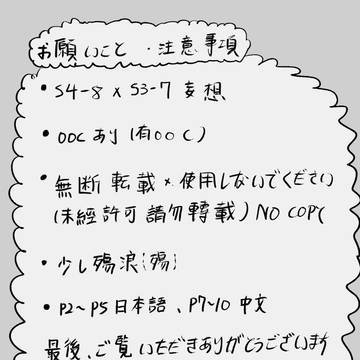 お願いこと・注意事項
• S4-8 x S3-7 妄想
• OOC あり (有OOC)
• 無断転載 × 使用しないでください
(未經許可請勿轉載) NO COPY
• 少し殤浪(殤)
• P2~P5 日本語、P7~10 中文
最後、ご覧いただきありがとうございます